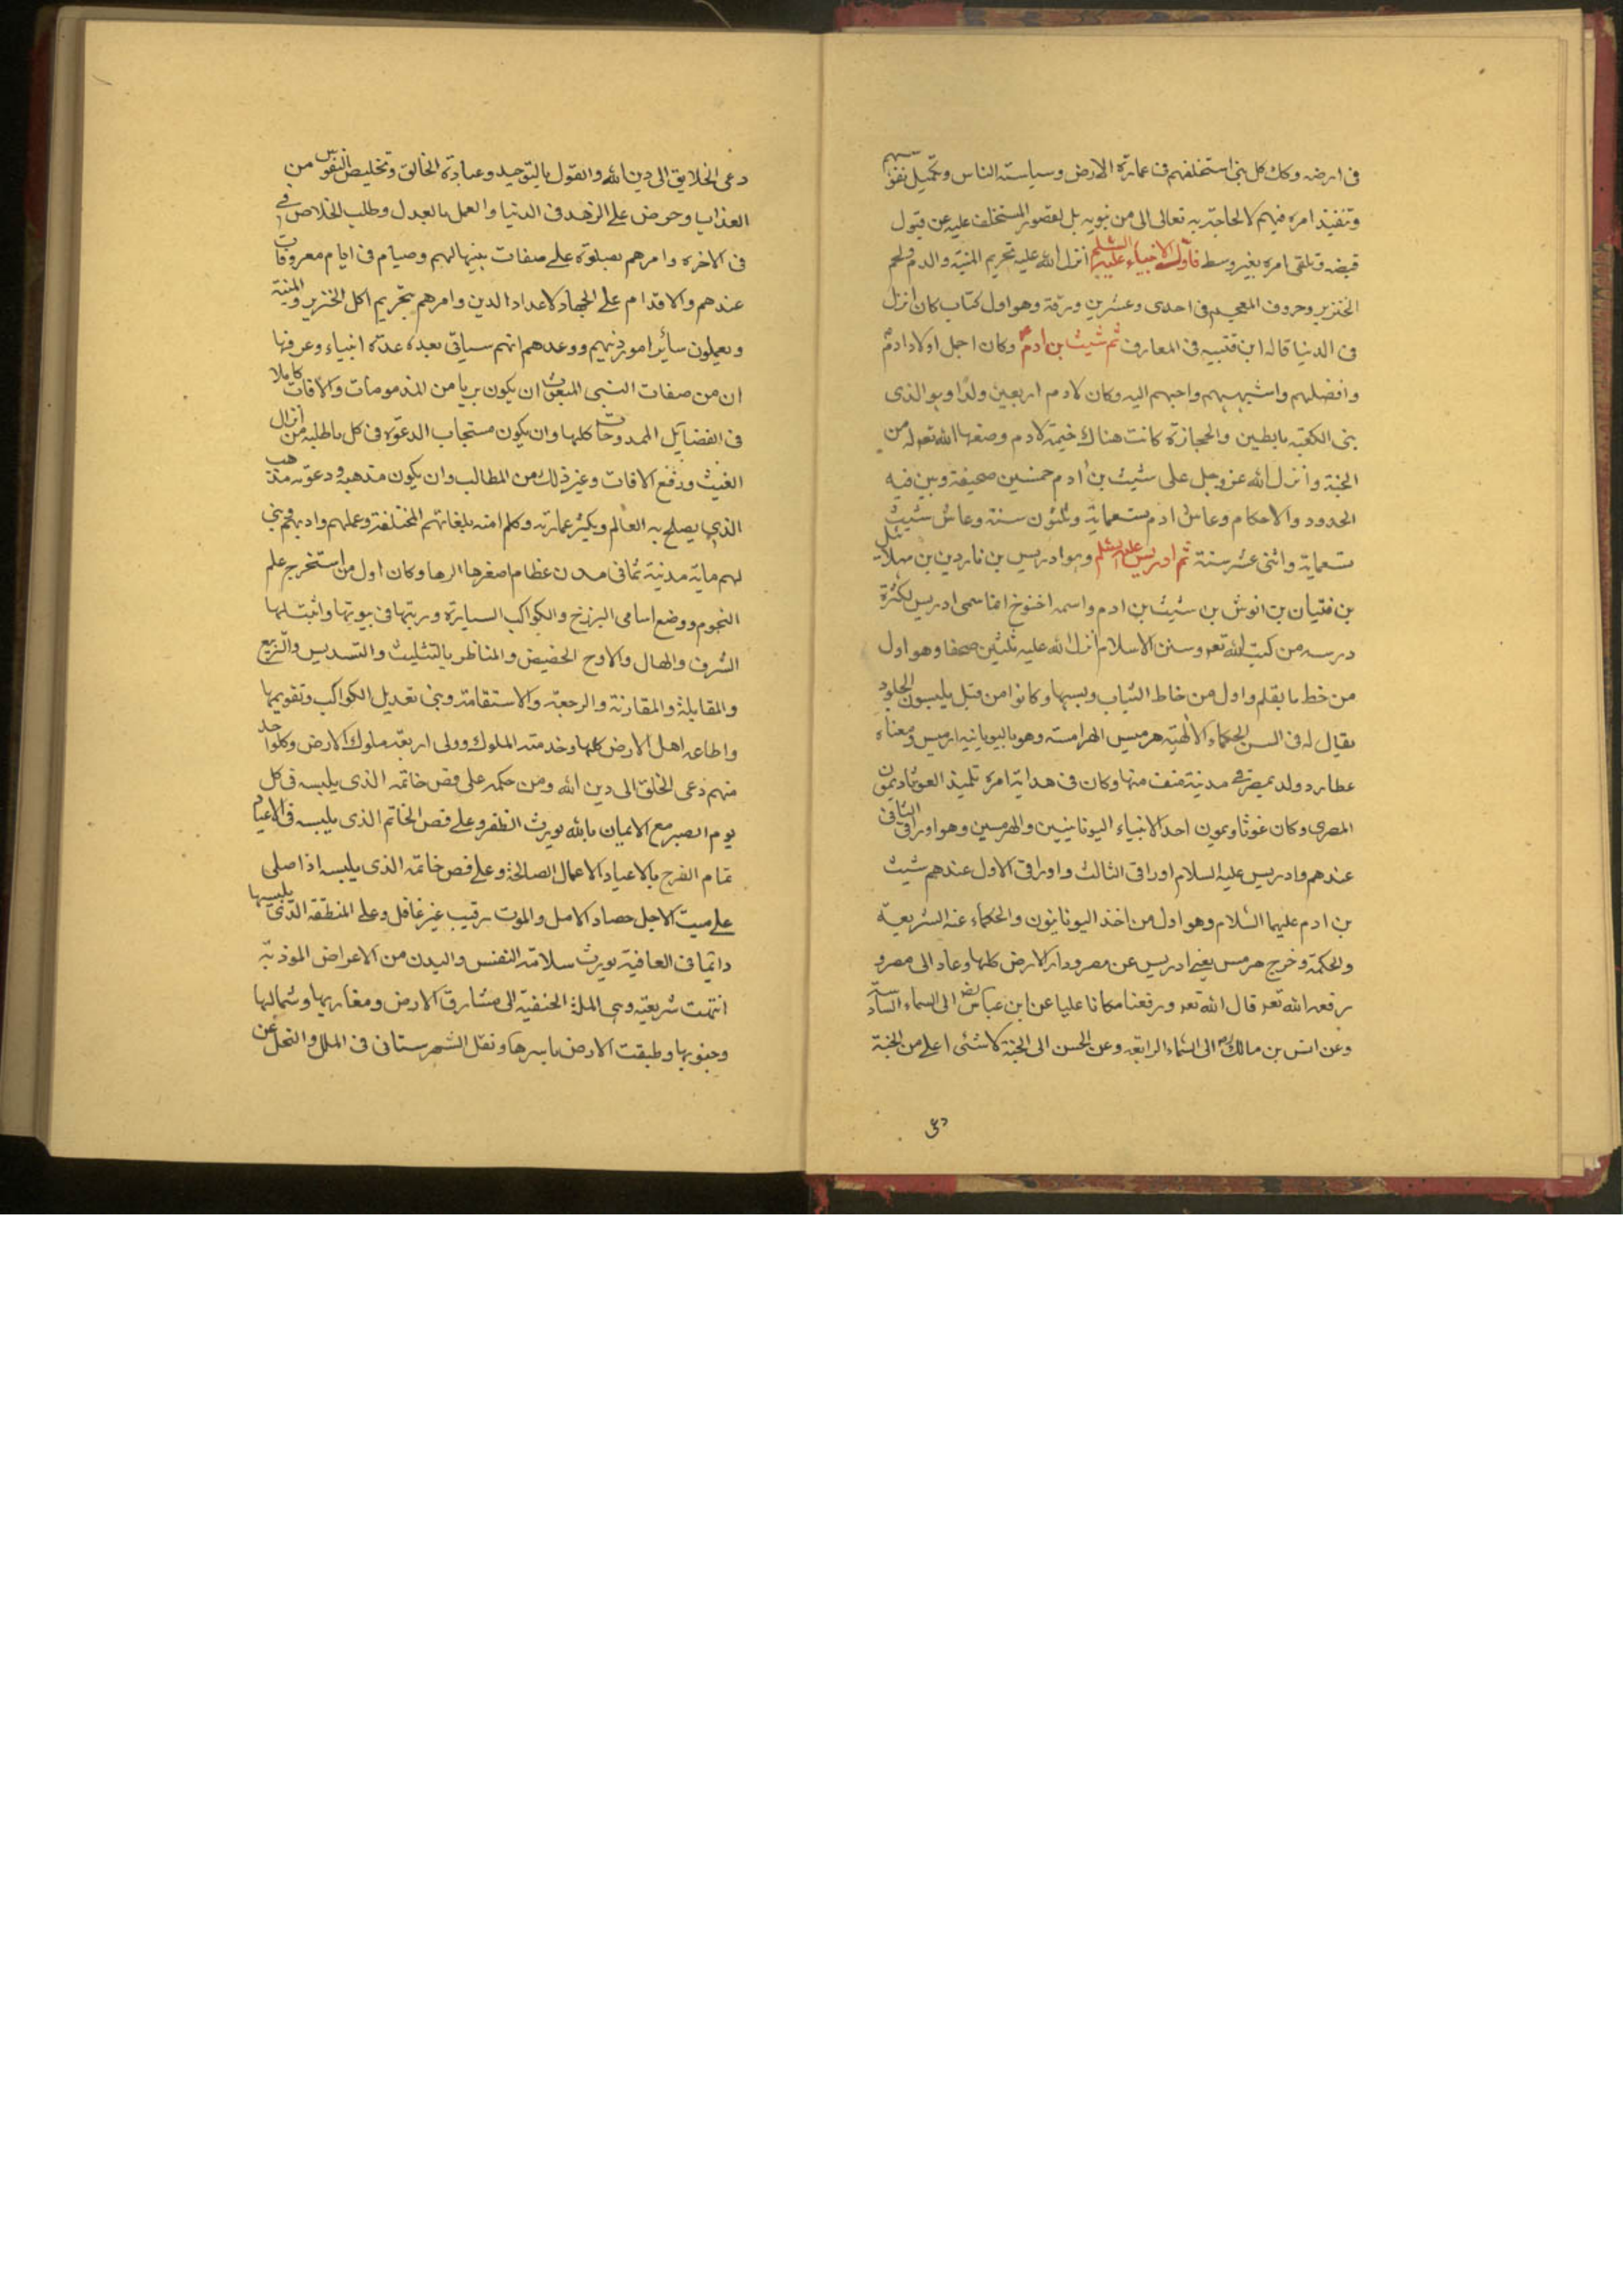 فى ارضه وكك كل بنى استخلفهم فى عمارة الارض وسياسته الناس وتكميل نفوسهم
وتنفيذ امره فيهم لا لحاجة به تعالى الى من ينوبه بل لقصور المستخلف عليه عن قبول
فيضه وتلقى امره بغير وسط فاول الانبياء عليهم السلم انزل الله عليه تحريم الميتة والدم ولحم
الخنزير وحروف المعجم فى احدى وعشرين ورقة وهو اول كتاب كان انزل
فى الدنيا قاله ابن قتيبه فى المعارف ثم شيث بن ادم وكان اجل اولاد ادم
وافضلهم واشبههم واحبهم اليه وكان لادم اربعين ولدا وهو الذى
بنى الكعبه بالطين والحجارة كانت هناك خيمة لادم وضعها الله تعه له من
الجنة وانزل الله عز وجل على شيث بن ادم خمسين صحيفة وبين فيه
الحدود والاحكام وعاش ادم تسعماية وثلثون سنة وعاش شيث
تسعماية واثنى عشر سنة ثم ادريس عليه السلم وهو ادريس بن ياردين بن مهلائيل
بن قتيان بن انوش بن شيث بن ادم واسمه اخنوخ انما سمى ادريس لكثرة
درسه من كتب الله تعه وسنن الاسلام انزل الله عليه ثلثين صحفا وهو اول
من خط بالقلم واول من خاط الثياب ولبسها وكانوا من قبل يلبسون الجلود
يقال له فى السن الحكماء الالهيه هرميس الهرامسه وهو باليونانيه ارميس ومعناه
عطارد ولد بمصر فى مدينة منف منها وكان فى هداية امره تلميذ الغوثاديمون
المصرى وكان غوثاديمون احد الانبياء اليونانيين والهرمسين وهو اورانى الثانى
عندهم وادريس عليه السلام اورانى الثالث واورانى الاول عندهم شيث
بن ادم عليهما السلام وهو اول من اخذ اليونانيون والحكماء عنه الشريعة
والحكمة وخرج هرمس يعنى ادريس عن مصر ودار الارض كلها وعاد الى مصر و
رفعه الله تعه قال الله تعه ورفعناه مكانا عليا عن ابن عباس رض الى السماء السادسة
وعن انس بن مالك الى السماء الرابعه وعن الحسن الى الجنة لا شئ اعلى من الجنة
دعى
دعى الخلايق الى دين الله والقول بالتوحيد وعبادة الخالق وتخليص النفوس من
العذاب وحرض على الزهد فى الدنيا والعمل بالعدل وطلب الخلاص فى
فى الاخره وامرهم بصلوة على صفات بينها لهم وصيام فى ايام معروفات
عندهم والاقدام على الجهاد لاعداد الدين وامرهم بتحريم اكل الخنزير والميتة
ويعملون سائر امور دينهم ووعدهم انهم سياتى بعده عدة انبياء وعرفها
ان من صفات النبى المبعوث ان يكون بريا من المذمومات والافات كاملا
فى الفضايل الممدوحات كلها وان يكون مستجاب الدعوة فى كل ما طلبه من انزال
الغيث ورفع الافات وغير ذلك من المطالب وان يكون مذهبه ودعوته مذهب
الذى يصلح به العالم ويكثر عمارته وكلم امته بلغاتهم المختلفة وعملهم وادبهم وبنى
لهم ماية مدينة ثمانى مدن عظام اصغرها الرها وكان اول من استخرج علم
النجوم ووضع اسامى البرزخ والكواكب السيارة ورتبها فى بيوتها واثبت لها
الشرف والهال والاوج الحضيض والمناظر بالتثليث والتسديس والتربيع
والمقابلة والمقارنة والرجعة والاستقامة وبنى تعديل الكواكب وتقويمها
واطاعه اهل الارض كلها وخدمته الملوك وولى اربعة ملوك الارض وكل واحد
منهم دعى الخلق الى دين الله ومن حكمه على فص خاتمه الذى يلبسه فى كل
يوم الصبر مع الايمان بالله يورث الظفر وعلى فص الخاتم الذى يلبسه فى الاعياد
تمام الفرح بالاعياد الاعمال الصالحة وعلى فص خاتمه الذى يلبسه اذا صلى
على ميت الاجل حصاد الامل والموت رقيب غير غافل وعلى المنطقه الذى يلبسها
دائما فى العافية يورث سلامة النفس والبدن من الاعراض الموذية
انتهت شريعته وهى الملة الحنفية الى مشارق الارض ومغاربها وشمالها
وجنوبها وطبقت الارض باسرها ونقل الشهرستانى فى الملل والنحل عن